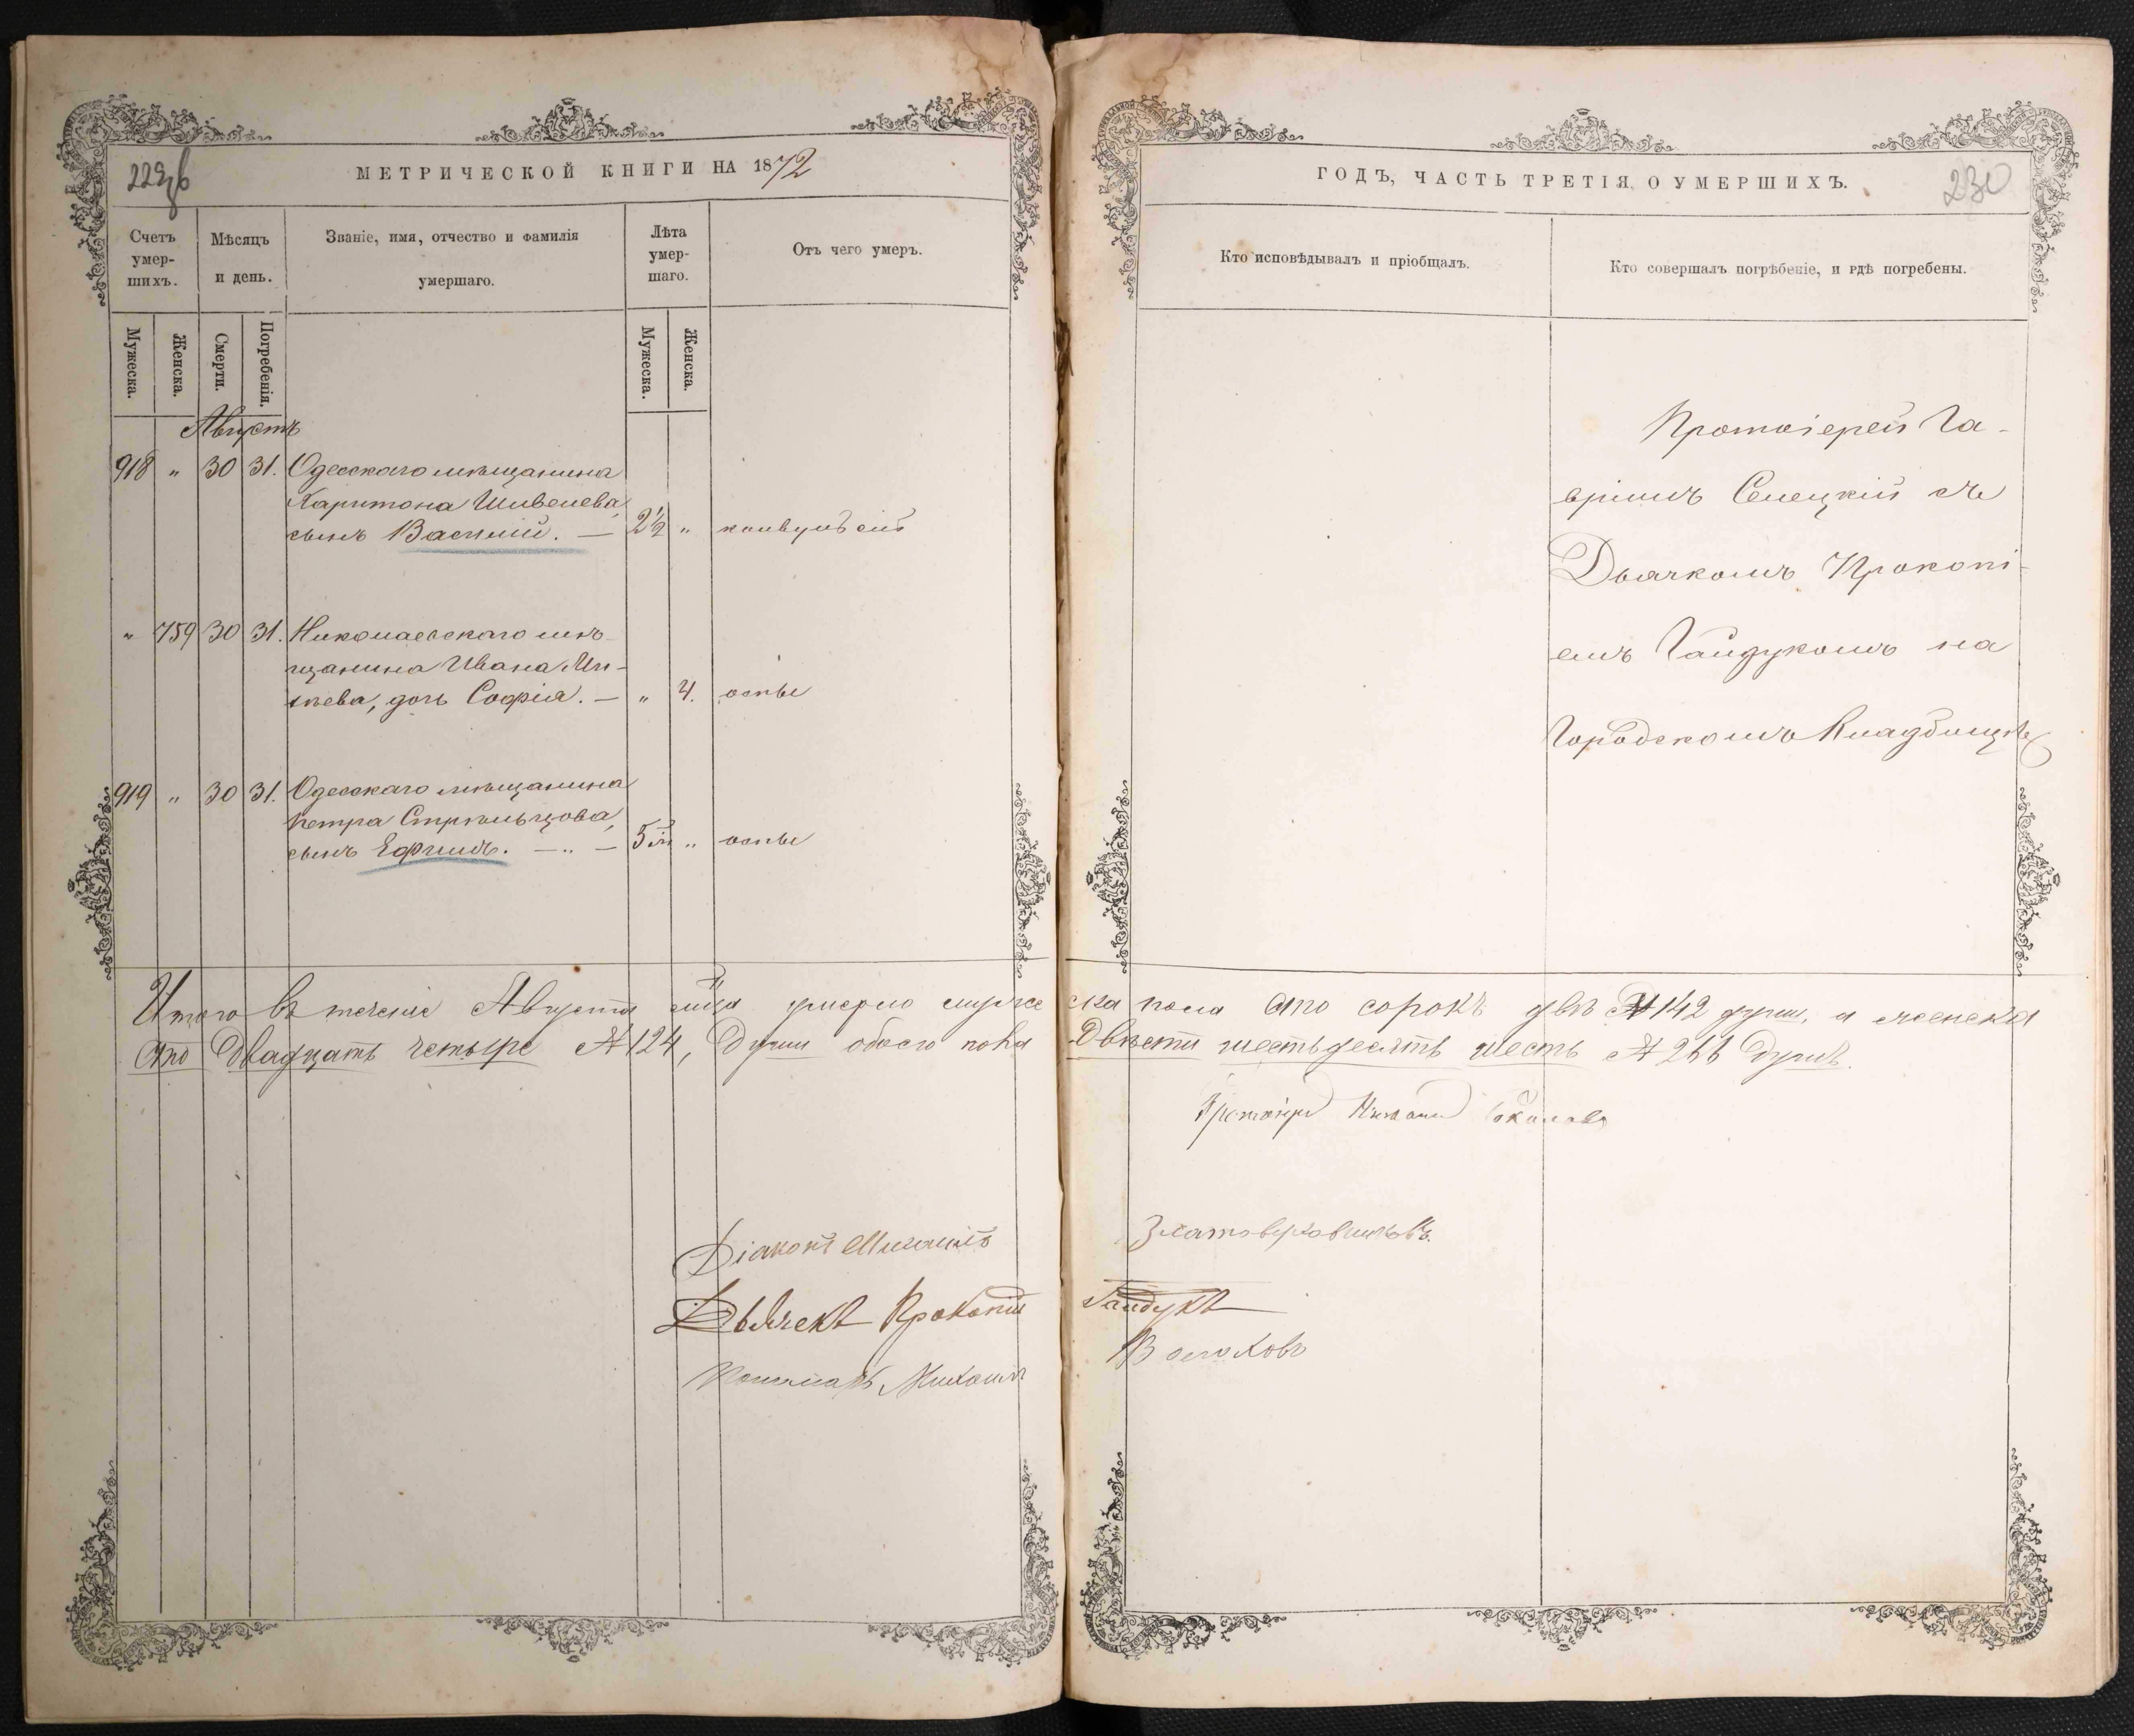 229 об
МЕТРИЧЕСКОЙ КНИГИ НА 1872
Счетъ умер-шихъ.
Мѣсяцъ и день.
Званіе, имя, отчество и фамилія умершаго.
Лѣта умер-шаго.
Отъ чего умеръ.
Мужеска.
Женска.
Смерти.
Погребенія.
Мужеска.
Женска.
Августъ
918 " 30 31. Одесскаго мѣщанина
Харитона Шивелева,
сынъ Василій. — 2½ " конвульсій
" 759 30 31. Николаевскаго мѣ-
щанина Ивана
дочь Софія. — " 4. оспы
919 " 30 31. Одесскаго мѣщанина
Петра Стрѣльцова,
сынъ Ефимъ. — " — 5 " оспы
ГОДЪ, ЧАСТЬ ТРЕТІЯ, О УМЕРШИХЪ.
230
Кто исповѣдывалъ и пріобщалъ.
Кто совершалъ погрѣбеніе, и гдѣ погребены.
Протоіерей Га-
вріилъ Селецкій съ
Дьячкомъ Прокопі-
емъ Гайдукомъ на
Городскомъ Кладбищѣ
Итого въ теченіе Августа м-ца умерло мужеска пола сто сорокъ два № 142 душъ, а женска
сто двадцать четыре № 124, душъ обоего пола Двѣсти шестьдесятъ шесть № 266 душъ.
Протоіерей
Діаконъ Михаилъ Златоверховниковъ
Дьячекъ Прокопій Гайдукъ
Пономарь Михаилъ Волоховъ